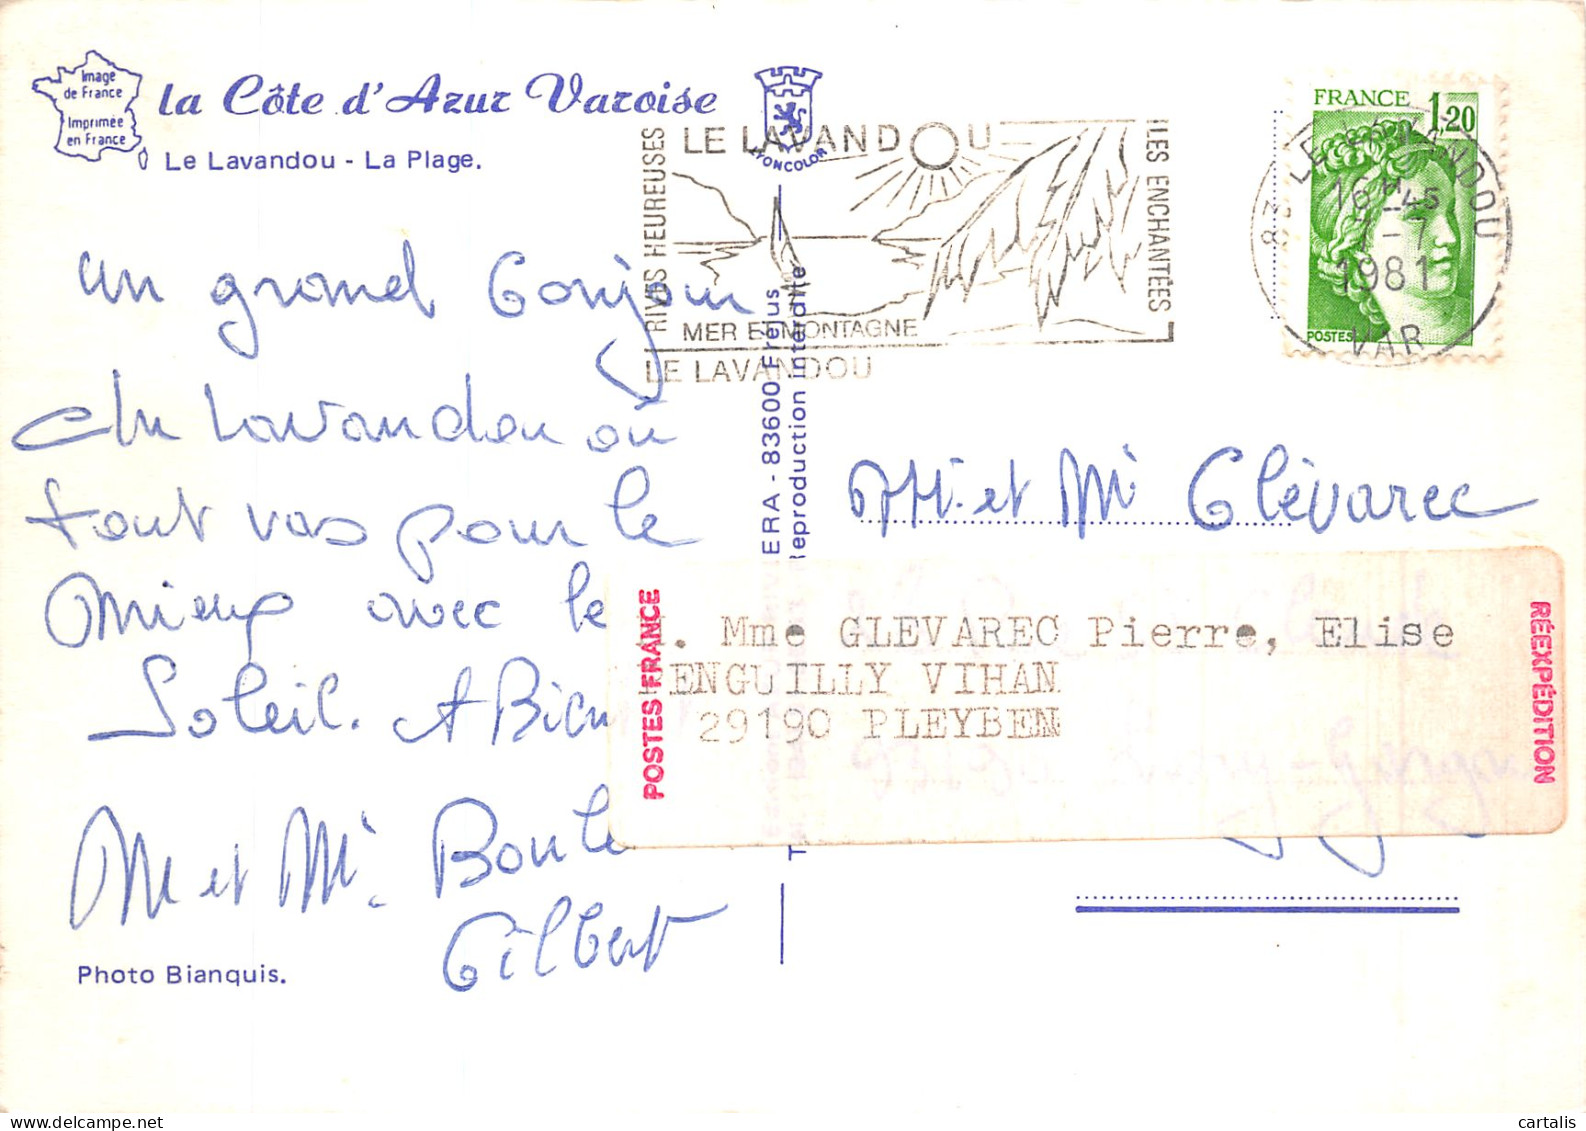 Image
de France
Imprimée
en France
la Côte d'Azur Varoise
Le Lavandou - La Plage.
LYONCOLOR
RIVES HEUREUSES
LE LAVANDOU
ILES ENCHANTÉES
MER ET MONTAGNE
LE LAVANDOU
FRANCE 1,20
POSTES
83 LE LAVANDOU
16H45
7-7
1981
VAR
un grand bonjour
du Lavandou où
tout vas pour le
mieux avec le
Soleil. A Bien
M et Me Boule
Gilbert
Photo Bianquis.
83600 Fréjus
Reproduction interdite
M. et Me Glévarec
POSTES FRANCE
. Mme GLEVAREC Pierre, Elise
ENGUILLY VIHAN
29190 PLEYBEN
RÉEXPÉDITION
cartalis